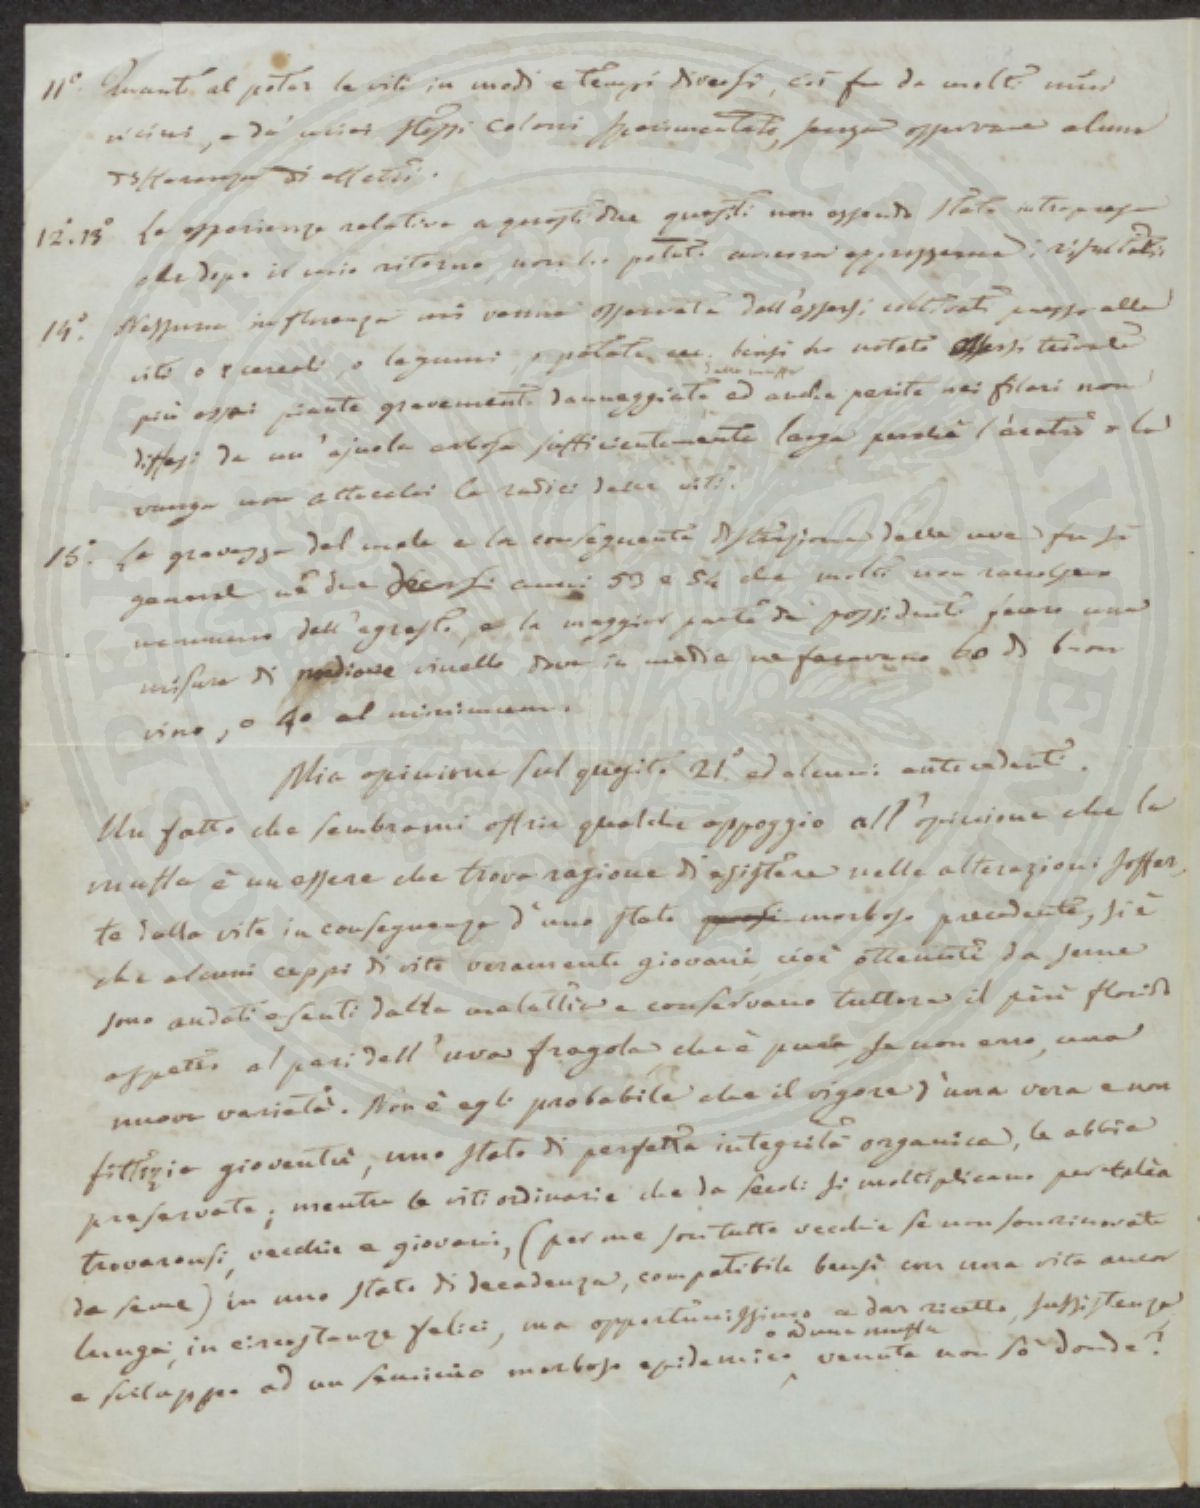 11°. Quanto al potar le viti in modi e tempi diversi, ciò fu da molti miei
vicini, e da' miei stessi coloni sperimentato, senza osservare alcuna
differenza di effetti.
12.° 13° Le esperienze relative a questi due quesiti non essendo state intraprese
che dopo il mio ritorno, non ho potuto ancora apprezzarne i risultati.
14°. Nessuna influenza mi venne osservata dall'essersi coltivati presso alle
viti o cereali, o legumi, o patate ecc. bensì ho notato essersi trovate
dalla muffa
più assai piante gravemente danneggiate ed anche perite nei filari non
difesi da un'ajuola erbosa sufficientemente larga perchè l'aratro o la
vanga non attacchi le radici delle viti.
15°. La gravezza del male e la conseguente distruzione delle uve fu sì
general ne' due decorsi anni 53 e 54 che molti non raccolsero
nemmeno dell'agresto, e la maggior parte de' possidenti fecero una
misura di vinello dove in media ne facevano 60 di buon
vino, o 40 al minimum.
Mia opinione sul quesito 21.° ed alcuni antecedenti.
Un fatto che sembrami offrir qualche appoggio all'opinione che la
muffa è un essere che trova ragione di esistere nelle alterazioni soffer-
te dalla vite in conseguenza d'uno stato quasi morboso precedente, si è
che alcuni ceppi di vite veramente giovani, cioè ottenuti da seme
sono andati esenti dalla malattia e conservano tuttora il più florido
aspetto al pari dell'uva fragola che è pura, se non erro, una
nuova varietà. Non è egli probabile che il vigore d'una vera e non
fittizia gioventù, uno stato di perfetta integrità organica, le abbia
preservate; mentre le viti ordinarie che da secoli si moltiplicano per talèa
trovaronsi, vecchie e giovani, (per me son tutte vecchie se non son rinovate
da seme) in uno stato di decadenza, compatibile bensì con una vita ancor
lunga, in circostanze felici, ma opportunissimo a dar ricetto, sussistenza
o ad una muffa
e sviluppo ad un seminio morboso epidemico, venuta non sò donde?